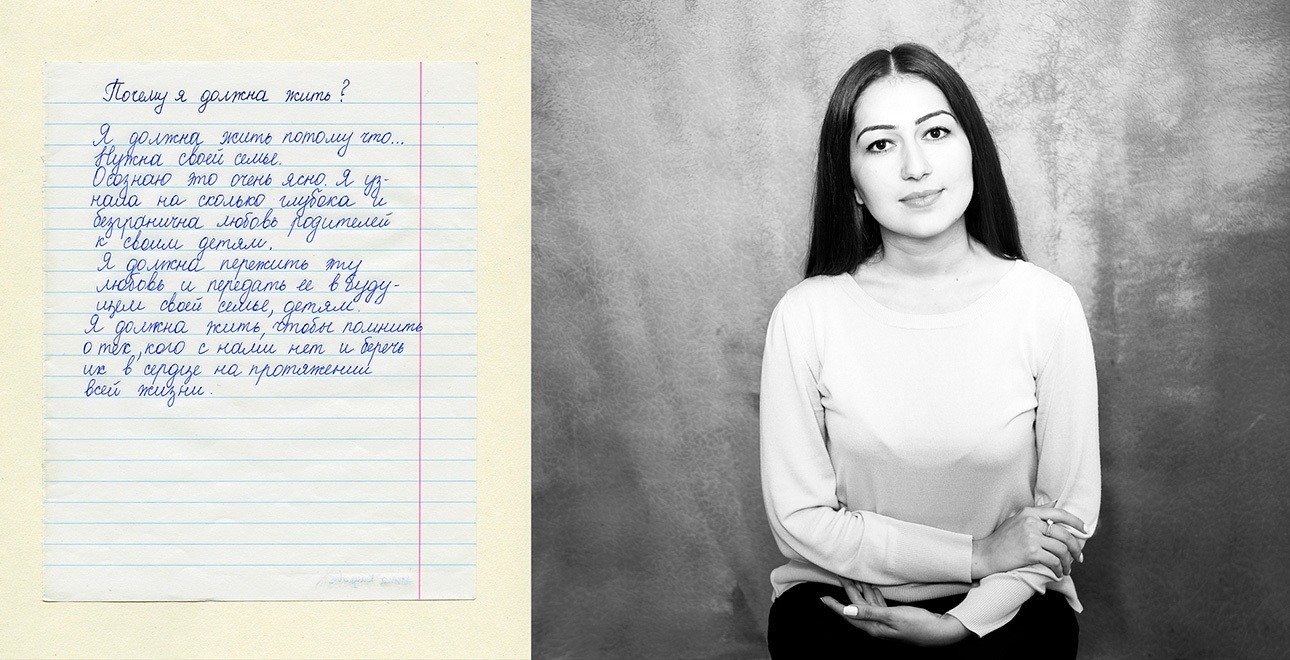 Почему я должна жить?
Я должна жить потому что...
Нужна своей семье.
Осознаю это очень ясно. Я уз-
нала на сколько глубока и
безгранична любовь родителей
к своим детям.
Я должна пережить эту
любовь и передать ее в буду-
щем своей семье, детям.
Я должна жить, чтобы помнить
о тех, кого с нами нет и беречь
их в сердце на протяжении
всей жизни.